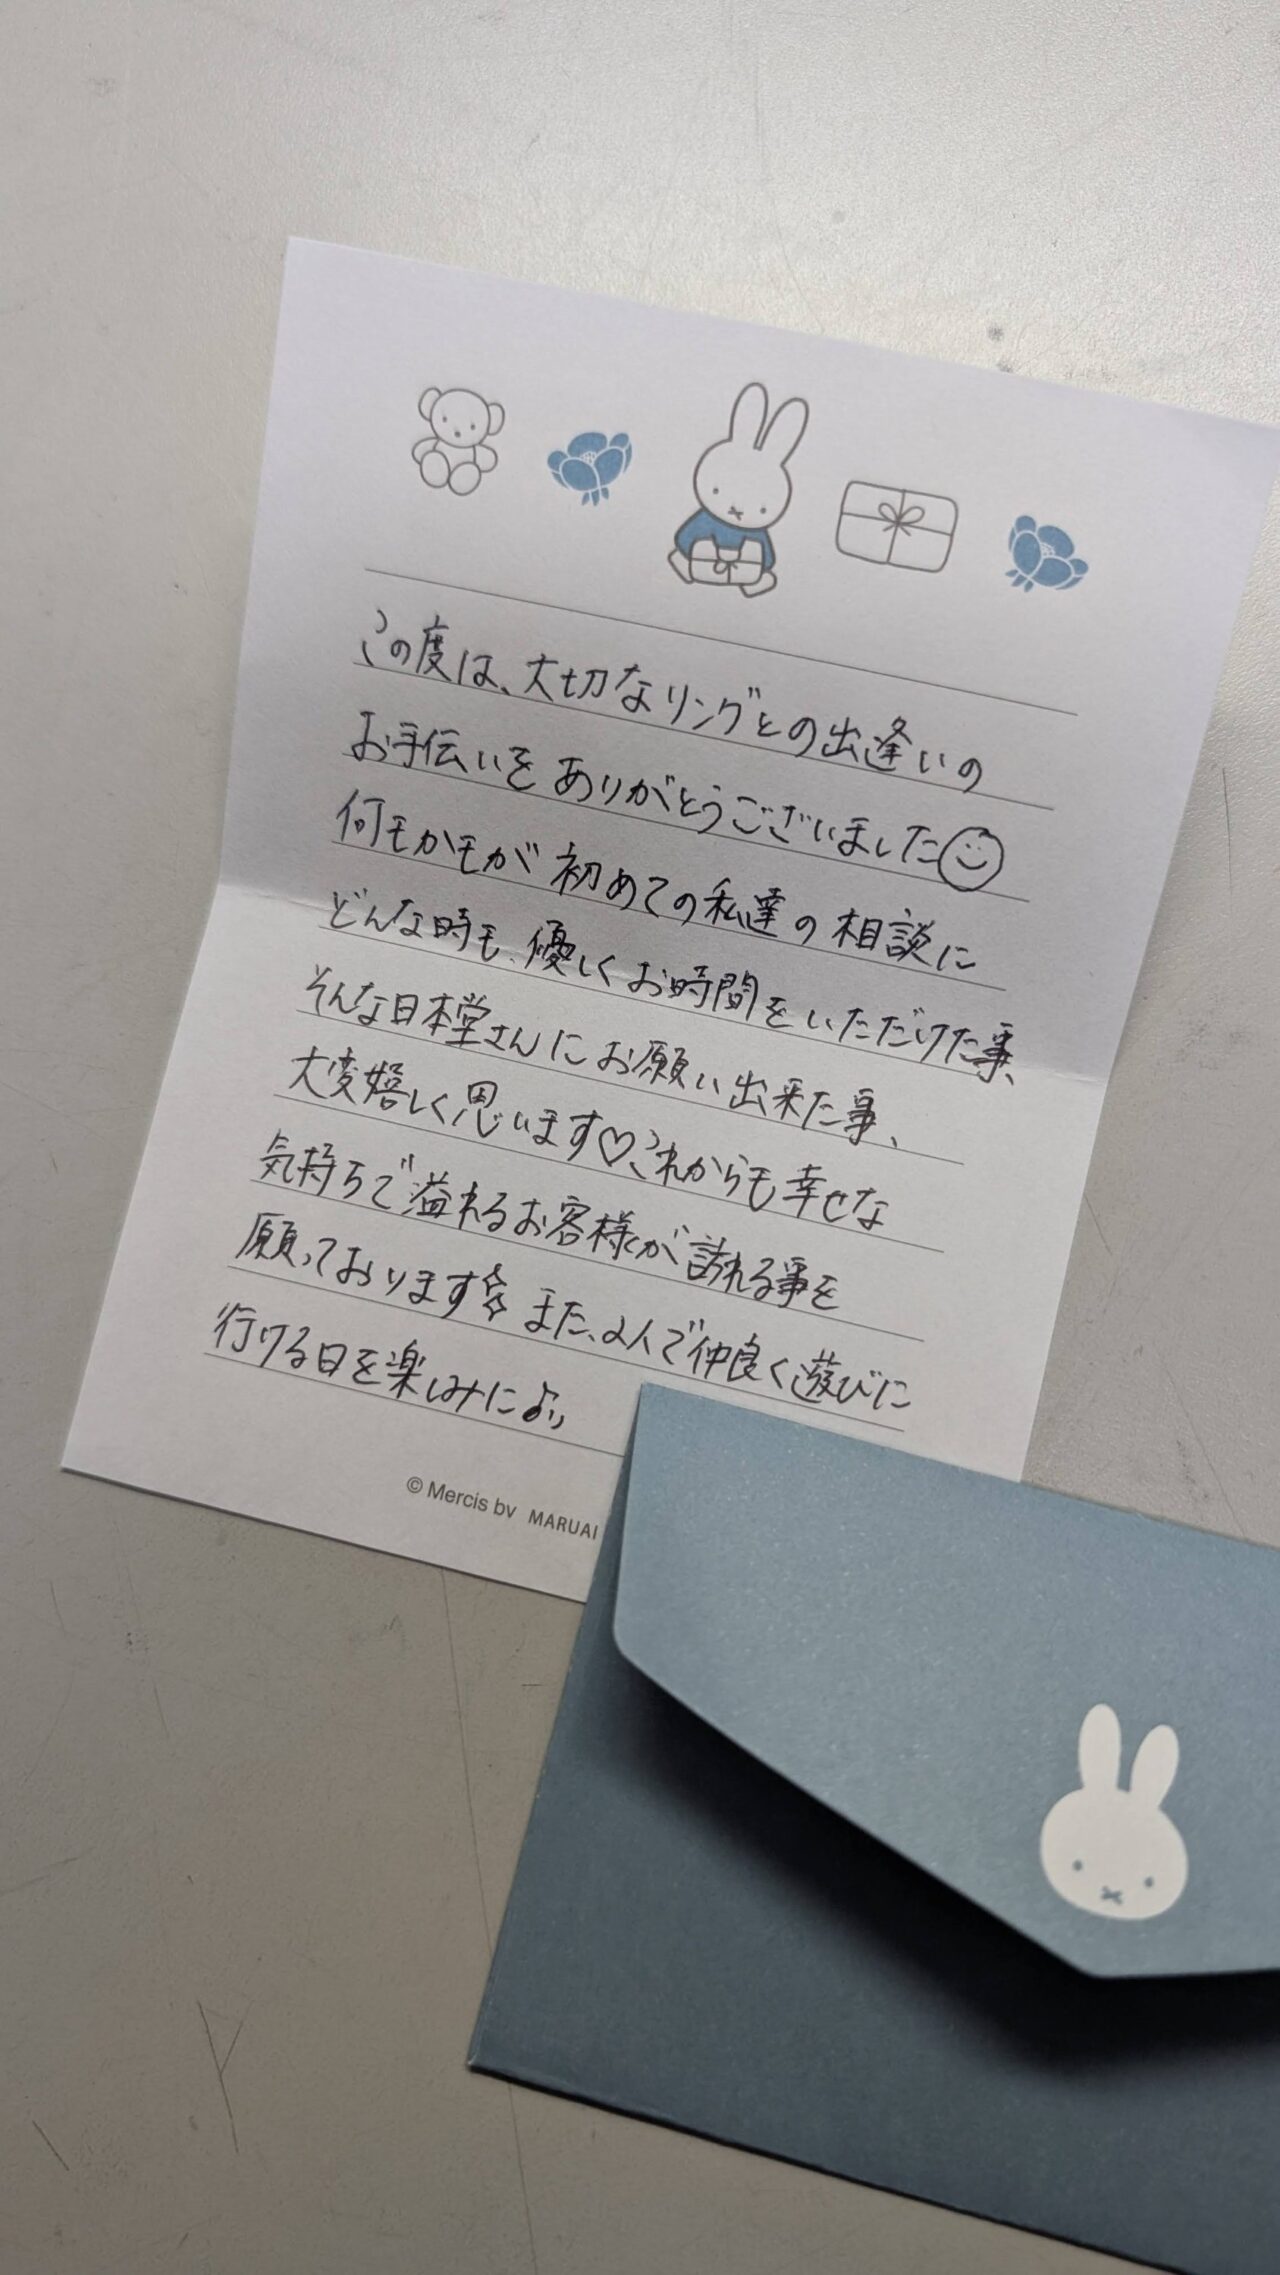 この度は、大切なリングとの出逢いの
お手伝いをありがとうございました
何もかもが初めての私達の相談に
どんな時も、優しくお時間をいただけた事、
そんな日本堂さんにお願い出来た事、
大変嬉しく思います♡これからも幸せな
気持ちで溢れるお客様が訪れる事を
願っております☆また、2人で仲良く遊びに
行ける日を楽しみに♪〃
© Mercis bv MARUAI